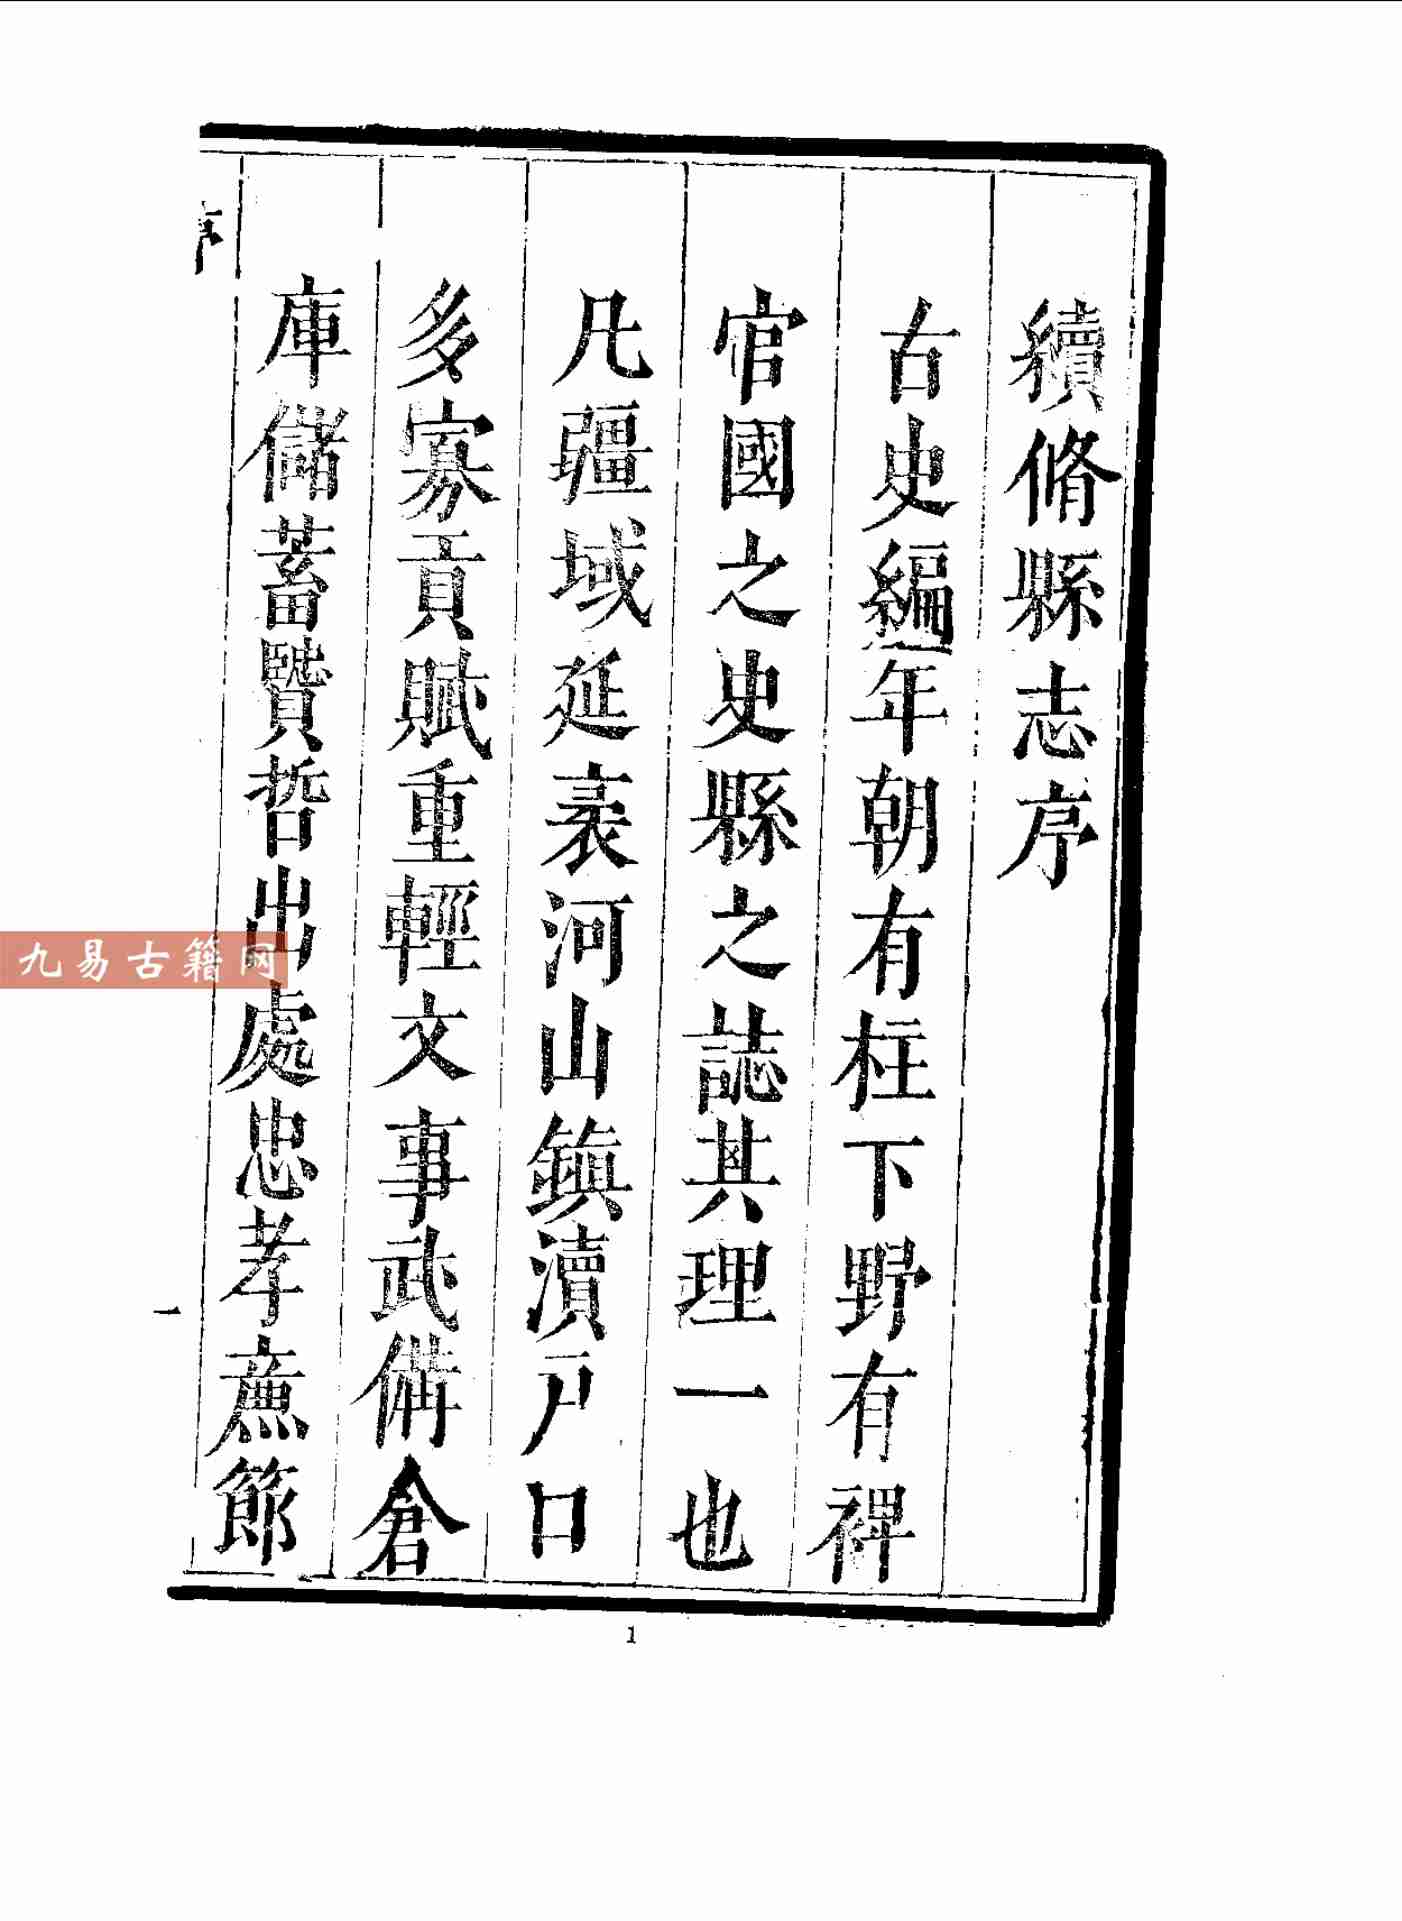 續脩縣志序
古史編年朝有柱下野有稗
官國之史縣之誌其理一也
凡疆域延袤河山鎮瀆戸口
多寡貢賦重輕文事武備倉
庫儲蓄賢哲出處忠孝亷節
序
一
九易古籍网
1